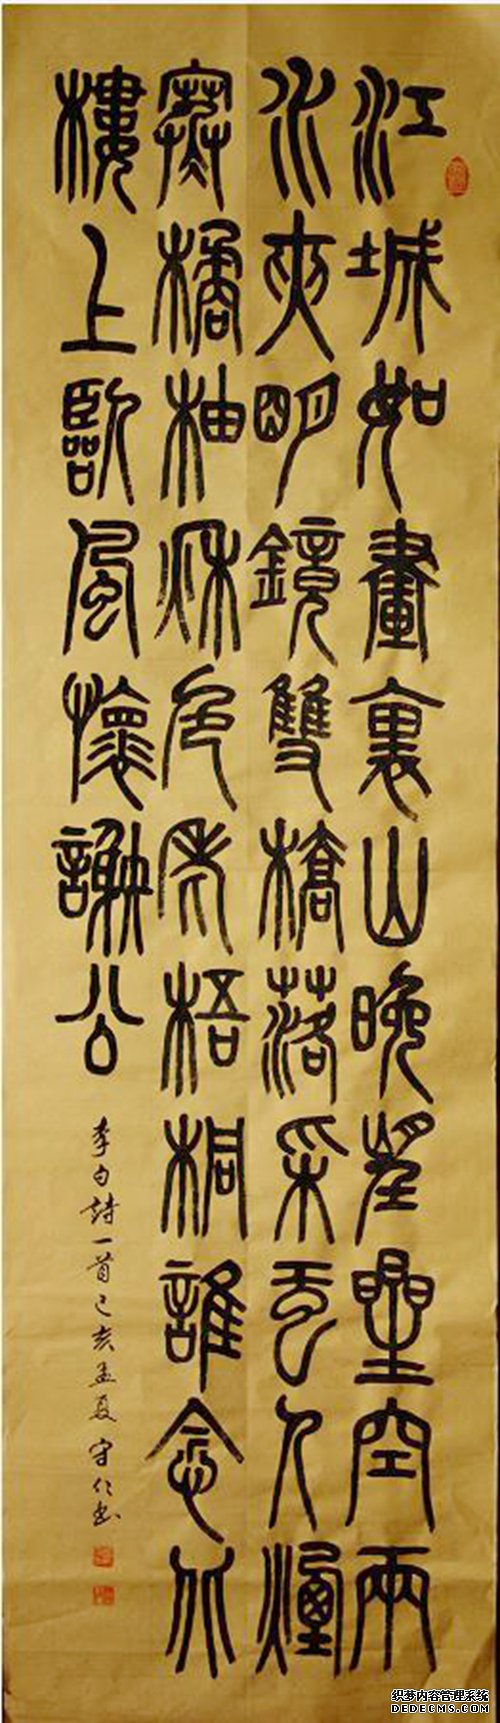 江城如畫裏山晚望晴空兩
水夾明鏡雙橋落采虹人煙
寒橘柚秋色老梧桐誰念北
樓上臨風懷謝公
李白詩一首己亥孟夏守仁書
织梦内容管理系统
DEDECMS.COM